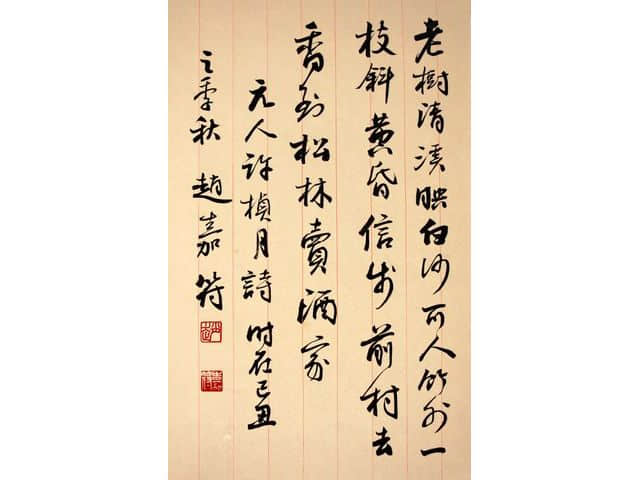 老樹清溪映白沙可人竹外一
枝斜黄昏信步前村去
香到松林賣酒家
元人許楨月詩 时在己丑
之季秋 趙嘉符